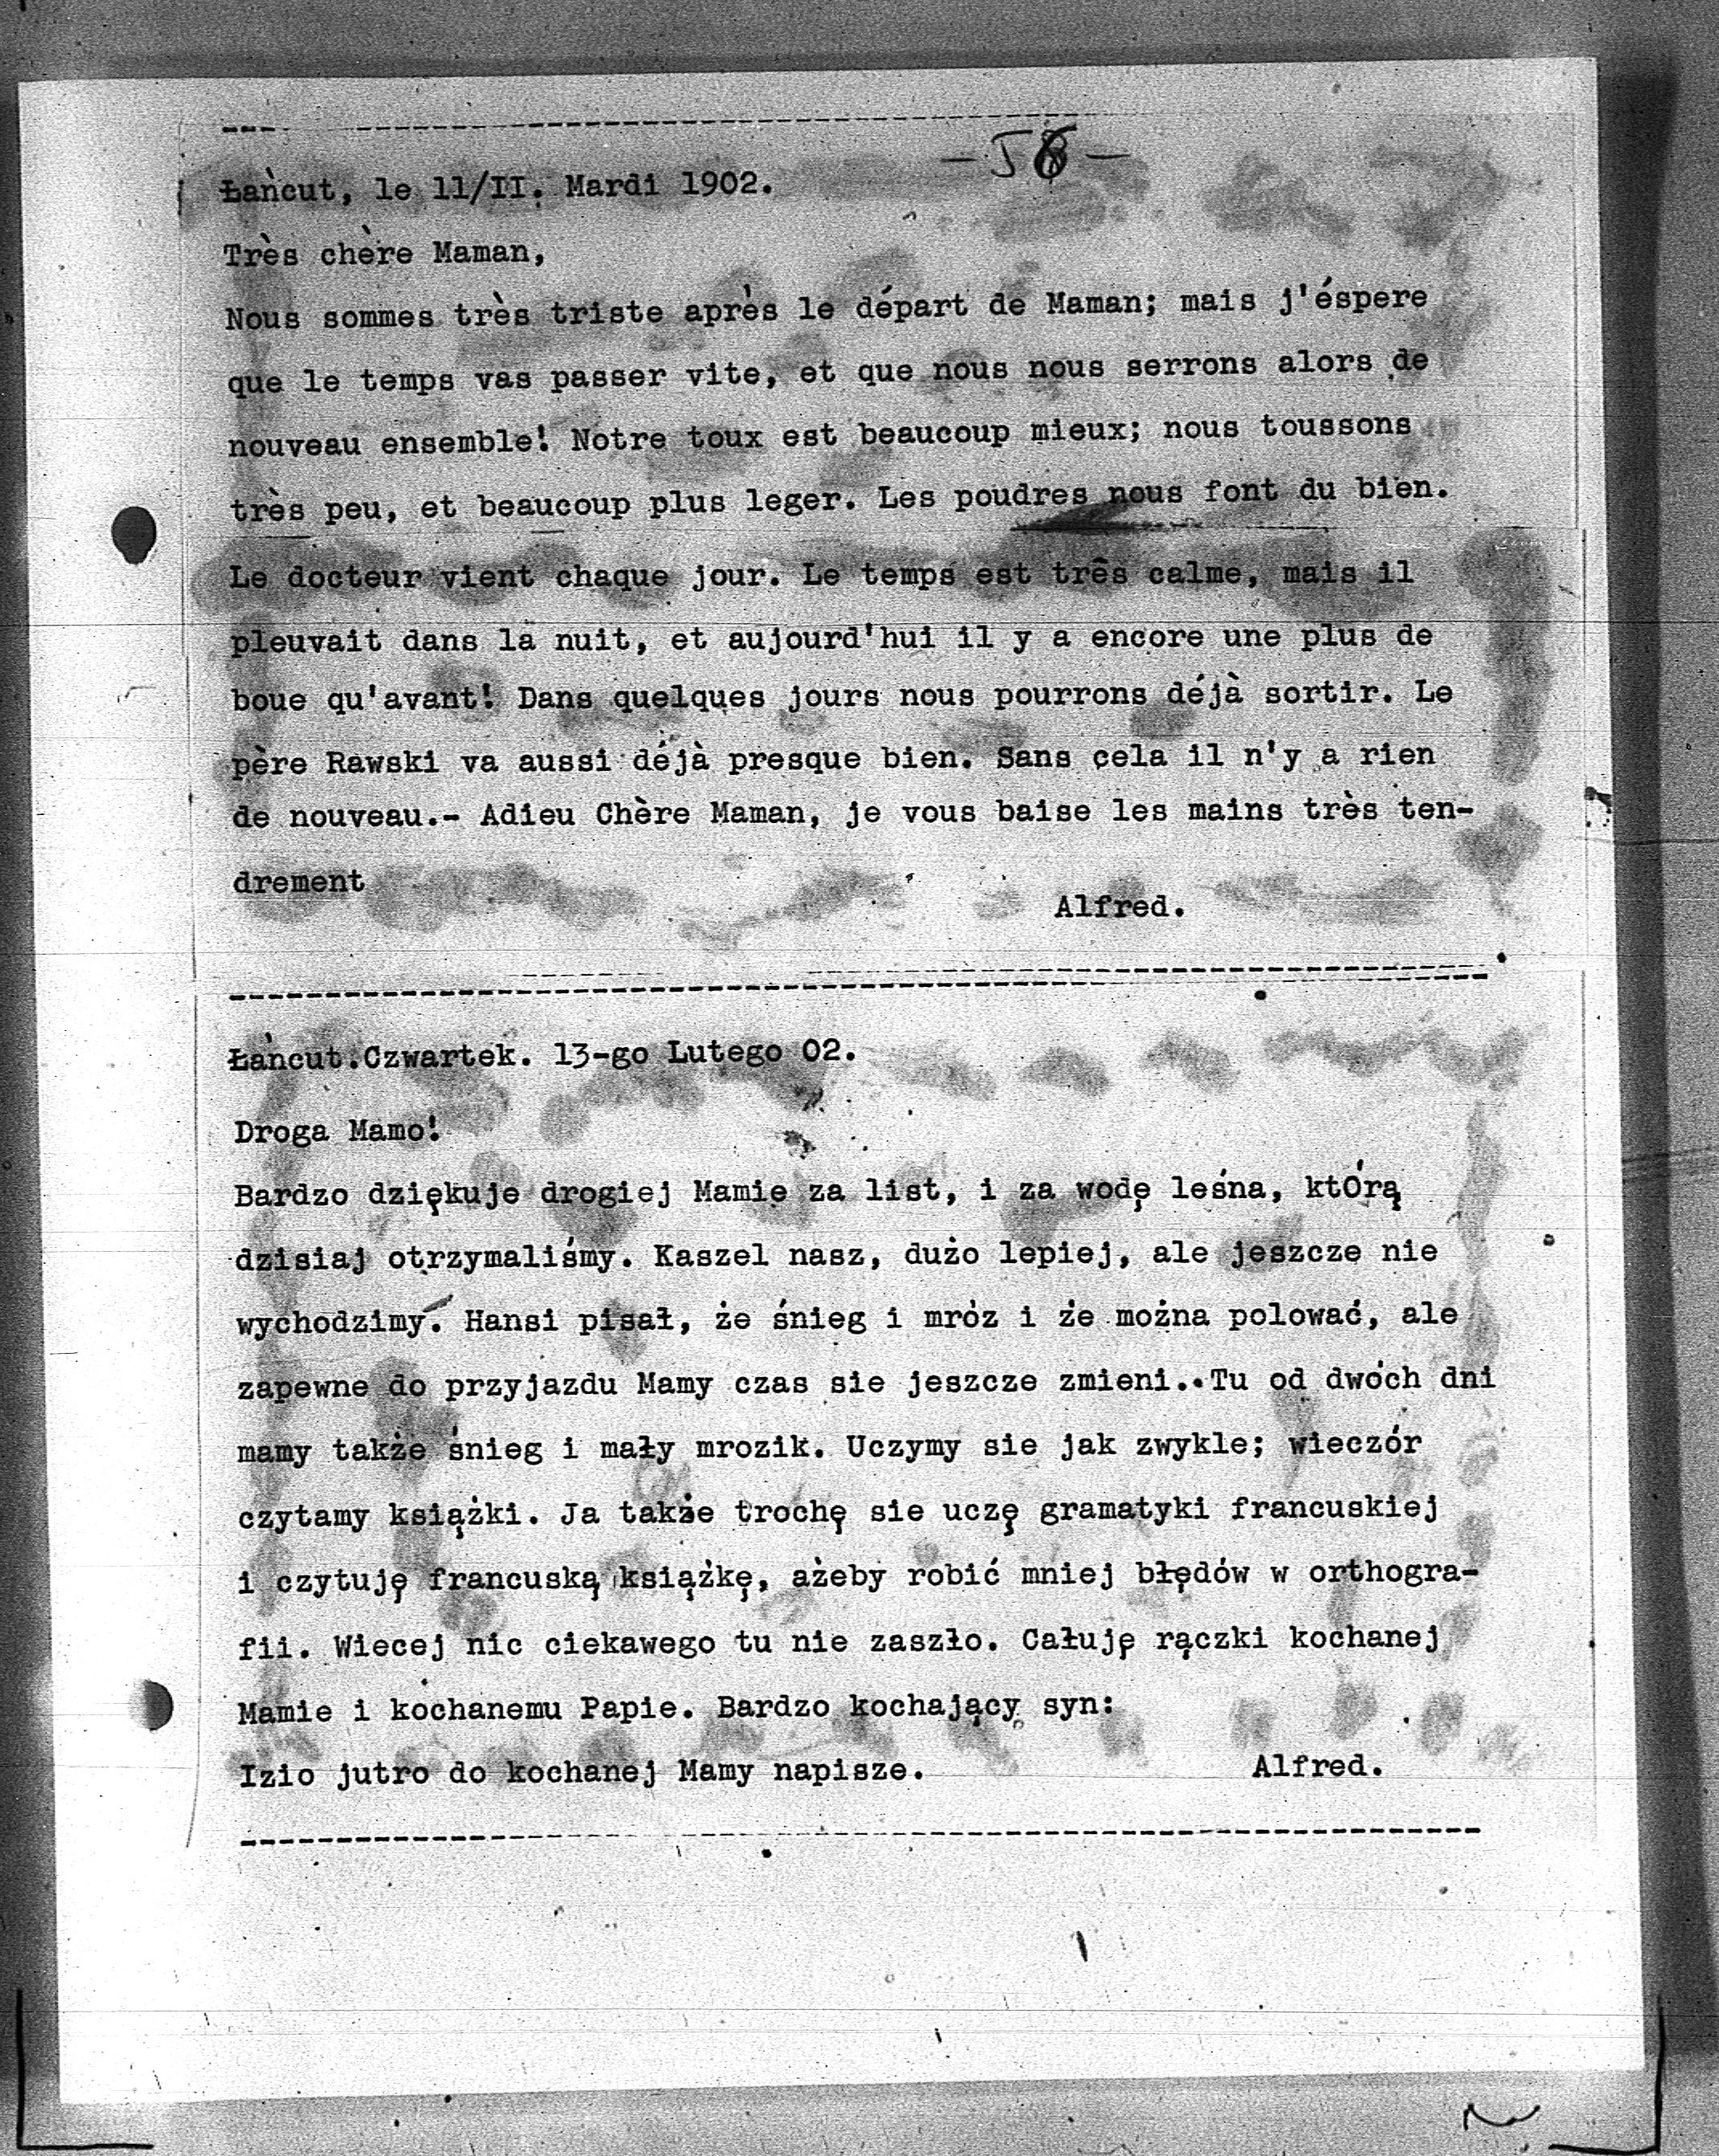 Łańcut, le 11/II. Mardi 1902.
Très chère Maman,
Nous sommes très triste après le départ de Maman; mais j'éspere
que le temps vas passer vite, et que nous nous serrons alors de
nouveau ensemble! Notre toux est beaucoup mieux; nous toussons
très peu, et beaucoup plus leger. Les poudres nous font du bien.
Le docteur vient chaque jour. Le temps est três calme, mais il
pleuvait dans la nuit, et aujourd'hui il y a encore une plus de
boue qu'avant! Dans quelques jours nous pourrons déjà sortir. Le
père Rawski va aussi déjà presque bien. Sans cela il n'y a rien
de nouveau.- Adieu Chère Maman, je vous baise les mains très ten-
drement
Alfred.
Łańcut.Czwartek. 13-go Lutego 02.
Droga Mamo!
Bardzo dziękuje drogiej Mamie za list, i za wodę leśna, którą
dzisiaj otrzymaliśmy. Kaszel nasz, dużo lepiej, ale jeszcze nie
wychodzimy. Hansi pisał, że śnieg i mróz i że można polować, ale
zapewne do przyjazdu Mamy czas sie jeszcze zmieni..Tu od dwóch dni
mamy także śnieg i mały mrozik. Uczymy sie jak zwykle; wieczór
czytamy książki. Ja także trochę sie uczę gramatyki francuskiej
i czytuję francuską książkę, ażeby robić mniej błędów w orthogra-
fii. Wiecej nic ciekawego tu nie zaszło. Całuję rączki kochanej
Mamie i kochanemu Papie. Bardzo kochający syn:
Izio jutro do kochanej Mamy napisze. Alfred.